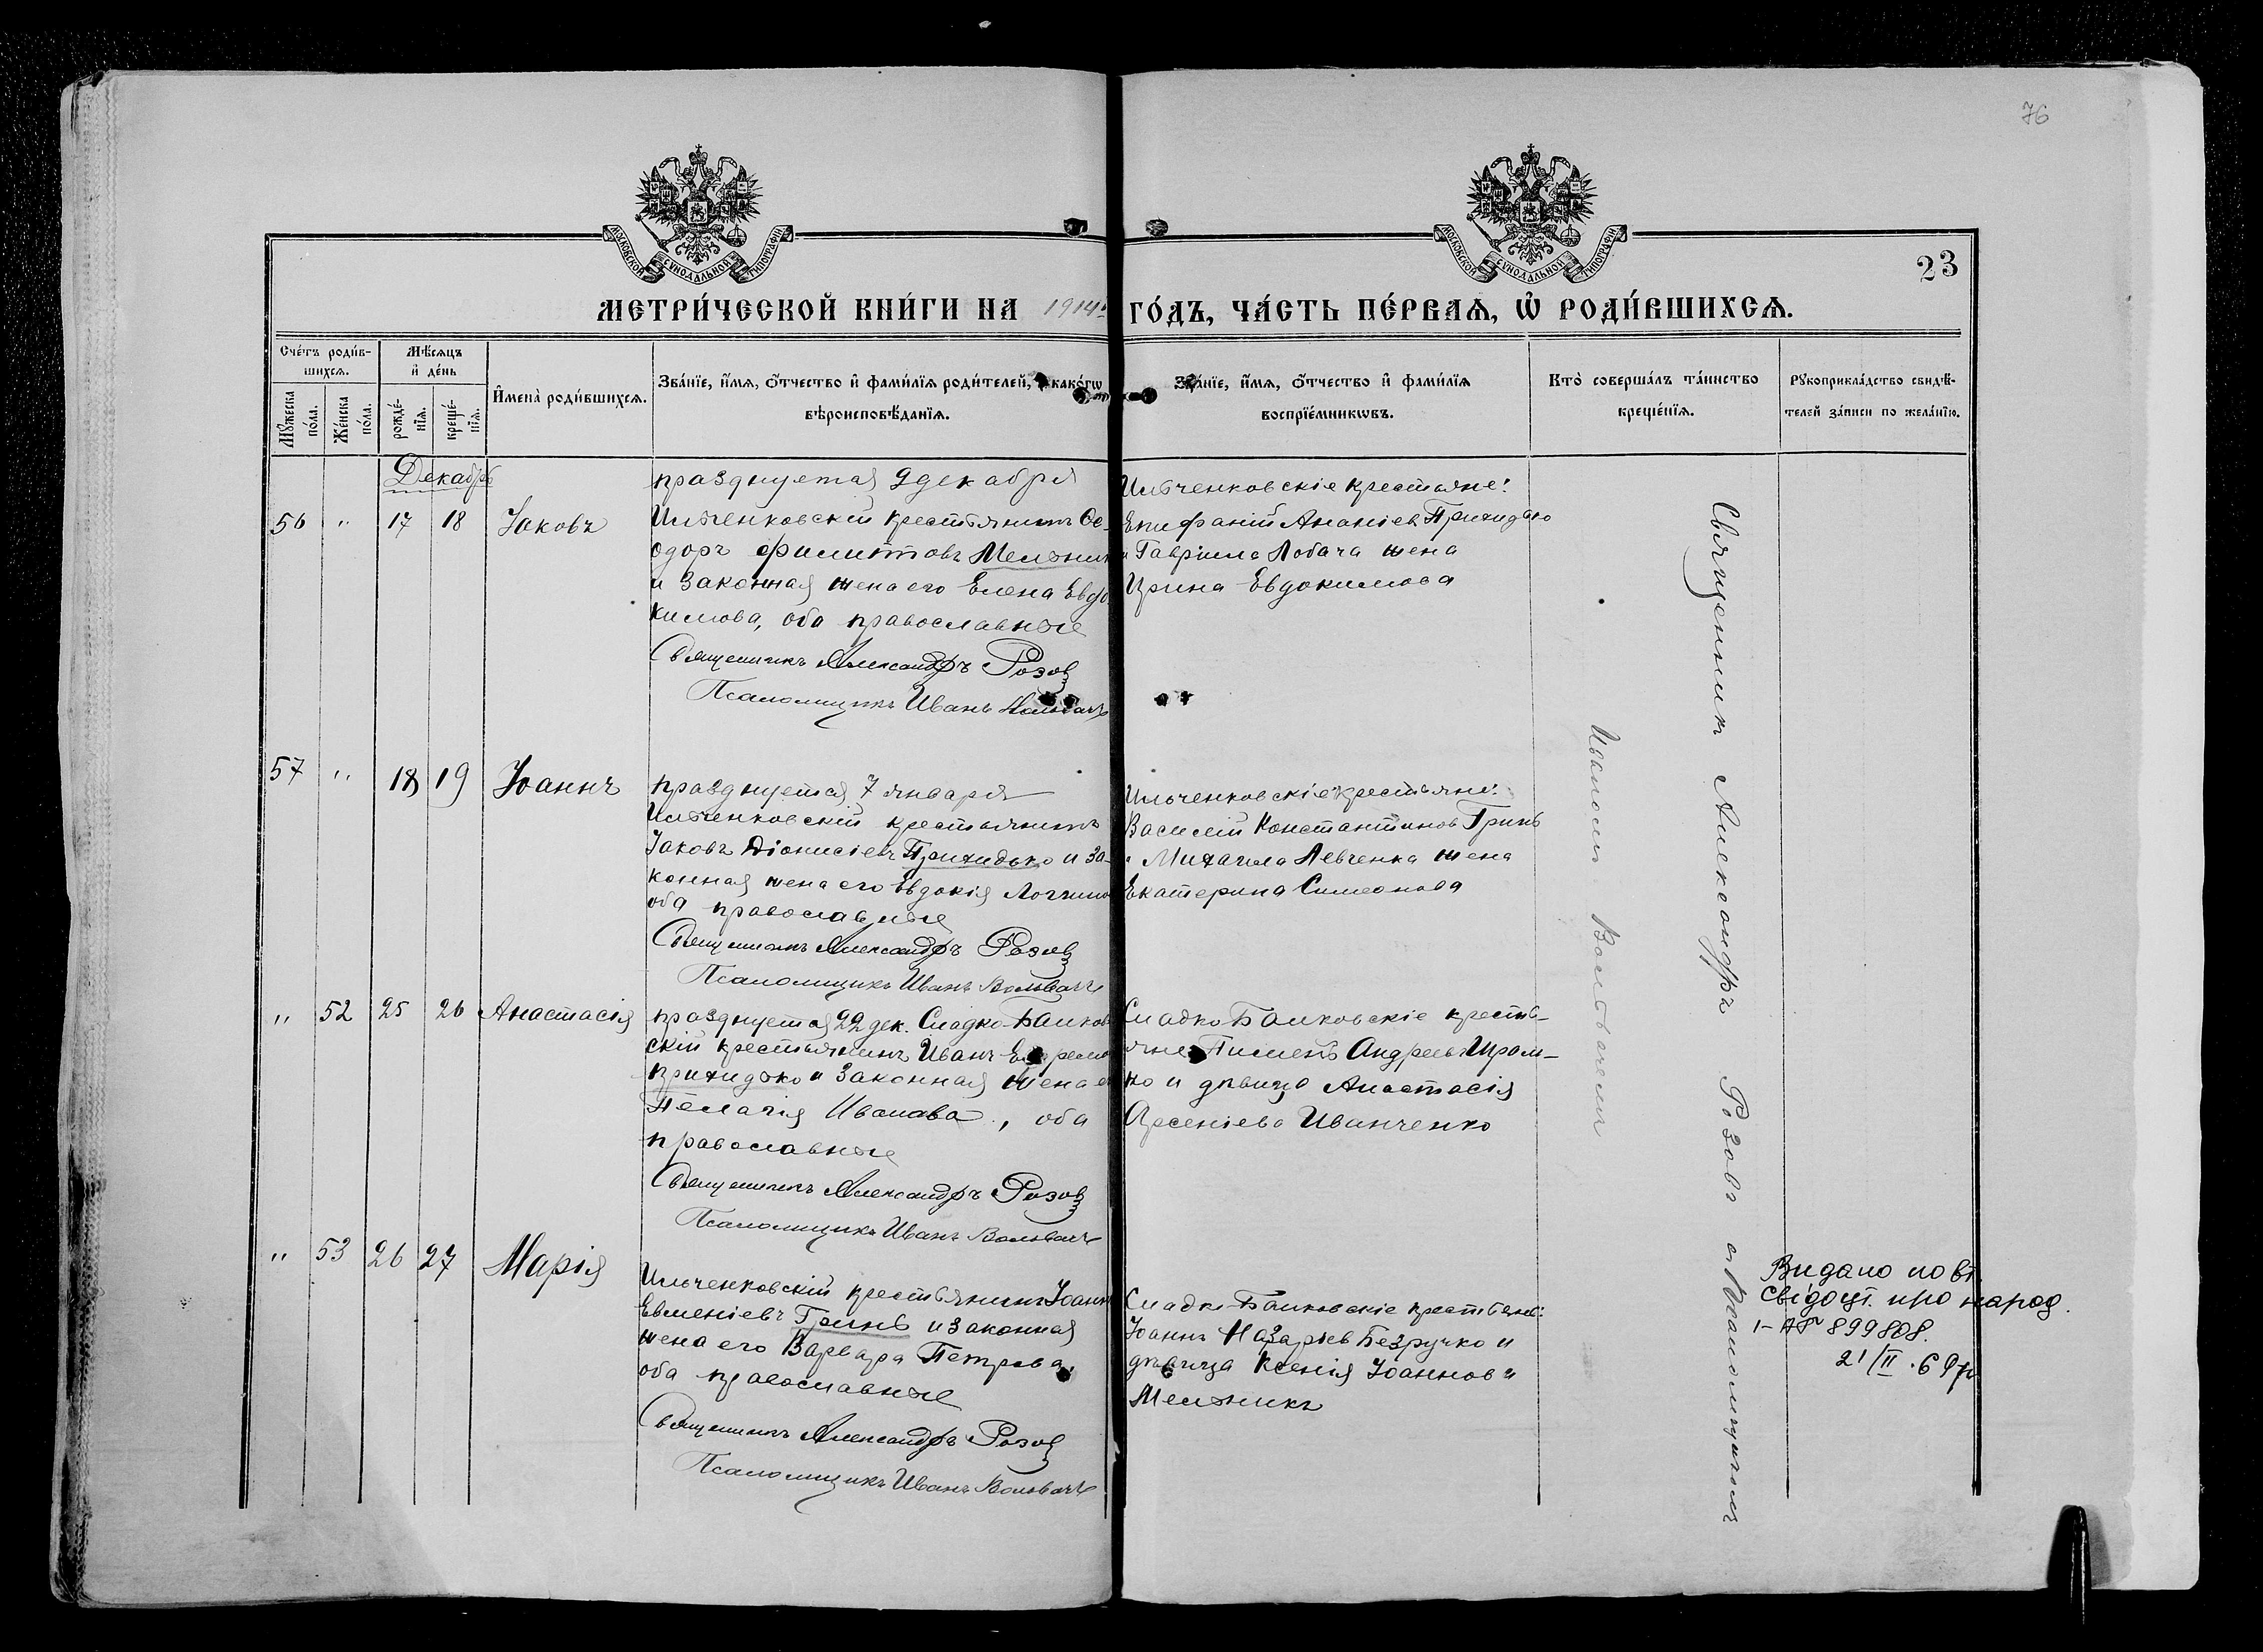 76
МОСКОВСКОЙ СѴНОДАЛЬНОЙ ТИПОГРАФІИ
МОСКОВСКОЙ СѴНОДАЛЬНОЙ ТИПОГРАФІИ
23
МЕТРИ́ЧЕСКОЙ КНИ́ГИ НА 1914й ГО́ДЪ, ЧА́СТЬ ПЕ́РВАѦ, Ѡ҆ РОДИ́ВШИХСѦ.
Сче́тъ роди́в-
шихсѧ.
Мꙋ́жеска
по́ла.
Же́нска
по́ла.
Мѣ́сѧцъ
и҆ де́нь
рожде́-
нїѧ.
креще́-
нїѧ.
И҆мена̀ роди́вшихсѧ.
Зва́нїе, и҆́мѧ, ѻ҆́тчество и҆ фами́лїѧ роди́телей, и҆ како́гѡ
вѣроисповѣ́данїѧ.
Зва́нїе, и҆́мѧ, ѻ҆́тчество и҆ фами́лїѧ
воспрїе́мникѡвъ.
Кто̀ соверша́лъ та́инство
креще́нїѧ.
Рꙋкоприкла́дство свидѣ́-
телей за́писи по жела́нїю.
Декабрь
празднуется 9 декабря
56 " 17 18 Іаковъ
Ильченковскій крестьянинъ Ѳе-
одоръ Филипповъ Мельник
и законная жена его Елена Евдо
кимова, оба православные
Священникъ Александръ Розов
Псаломщикъ Иванъ Вольвачъ
Ильченковскіе крестьяне:
Епифаній Ананіев Прихидько
и Гавріила Лобача жена
Ирина Евдокимова
57 " 18 19 Іоаннъ
празднуется 7 января
Ильченковскій крестьянинъ
Іаковъ Діонисіевъ Прихидько и за-
конная жена его Евдокія Логгино
оба православные
Священникъ Александръ Розов
Псаломщикъ Иванъ Вольвачъ
Ильченковскіе крестьяне:
Василій Константинов Гринь
и Михаила Левченка жена
Екатерина Симеонова
" 52 25 26 Анастасія
празднуется 22 дек. Сладко-Балков
скій крестьянинъ Иванъ Ефремо
Прихидько и законная жена ег
Пелагія Иванова, оба
православные
Священникъ Александръ Розов
Псаломщикъ Иванъ Вольвачъ
Сладко Балковскіе кресть-
яне Пименъ Андреевъ
и дѣвица Анастасія
Арсеніева Иванченко
" 53 26 27 Марія
Ильченковскій крестьянинъ Іоанн
Евменіевъ Гринь и законная
жена его Варвара Петрова,
оба православные
Священникъ Александръ Розов
Псаломщикъ Иванъ Вольвачъ
Сладко-Балковскіе крестьяне:
Іоаннъ Назарьев Безручко и
дѣвица Ксенія Іоаннова
Мельникъ
Священник Александръ Розовъ съ Псаломщикомъ
Иваномъ Вольвачемъ
Видано повт.
свідоцт. про народ.
899808.
21/II.69р